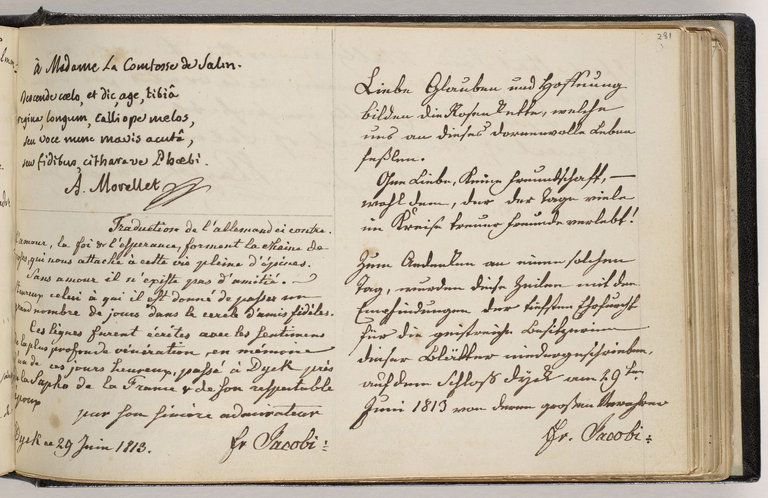 à Madame La Comtesse de Salm.
Descende cœlo, et dic, age, tibiâ
regina, longum, calliope melos,
seu voce nunc mavis acutâ,
seu fidibus, citharave Phœbi.
A. Morellet
Traduction de l'allemand ci contre.
L'amour, la foi & l'esperance, forment la chaine de
qui nous attache à cette vie pleine d'épines.
Sans amour il n'existe pas d'amitié. —
heureux celui à qui il est donné de passer un
grand nombre de jours dans le cercle d'amis fidèles.
Ces lignes furent écrites avec les sentimens
de la plus profonde vénération, en mémoire
un de ces jours heureux, passé à Dyck près
la Sapho de la France & de son respectable
époux
par son sincère admirateur
Dyck ce 29 Juin 1813.
Fr Jacobi
231
Liebe Glauben und Hoffnung
bilden die Rosen Kette, welche
uns an dieses dornenvolle Leben
feßlen.
Ohne Liebe, Keine Freundschaft, —
wohl dem, der der Tage viele
im Kreise treuer Freunde verlebt!
Zum Andenken an einen solchen
Tag, wurden diese Zeilen mit den
Empfindungen der tiefsten Ehrfurcht
für die geistreiche Besitzerinn
dieser Blätter niedergeschrieben,
auf dem Schloß Dyck am 29ten
Juni 1813 von deren großen Verehrer
Fr. Jacobi